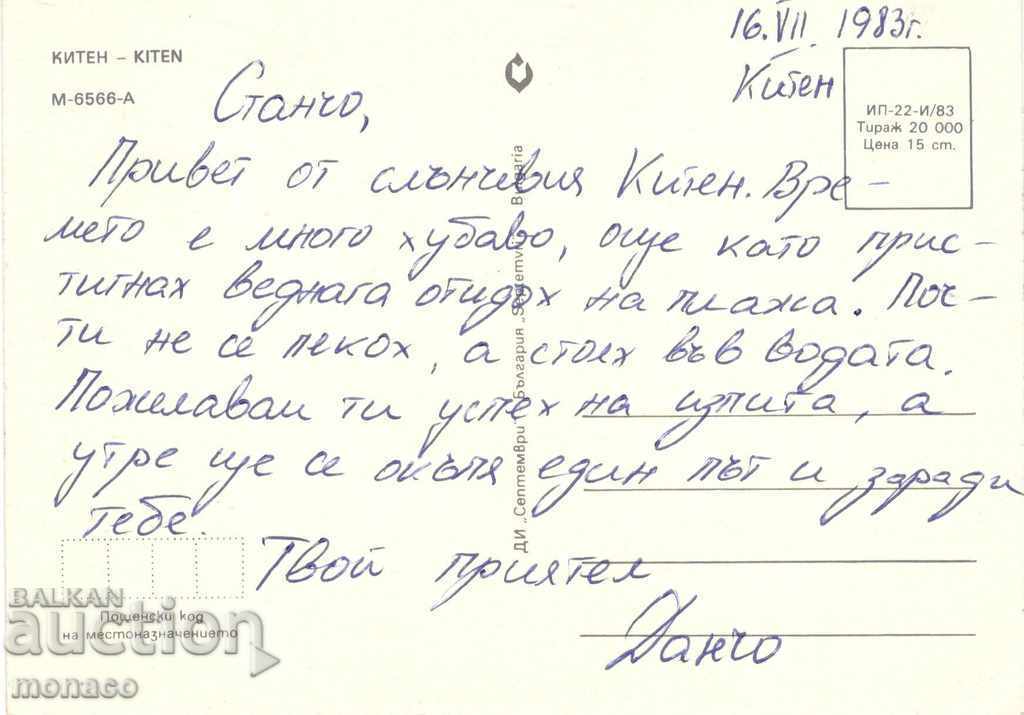 16.VII 1983г.
Китен
КИТЕН – KITEN
М-6566-А
ИП-22-И/83
Тираж 20 000
Цена 15 ст.
Станчо,
Привет от слънчевия Китен. Вре-
мето е много хубаво, още като прис-
титнах веднага отидох на плажа. Поч-
ти не се пекох, а стоях във водата.
Пожелавам ти успех на изпита, а
утре ще се окъпя един път и заради
тебе.
Твой приятел
Данчо
ДИ „Септември" България „Septemvri" Bulgaria
Пощенски код
на местоназначението
BALKAN
auction
monaco